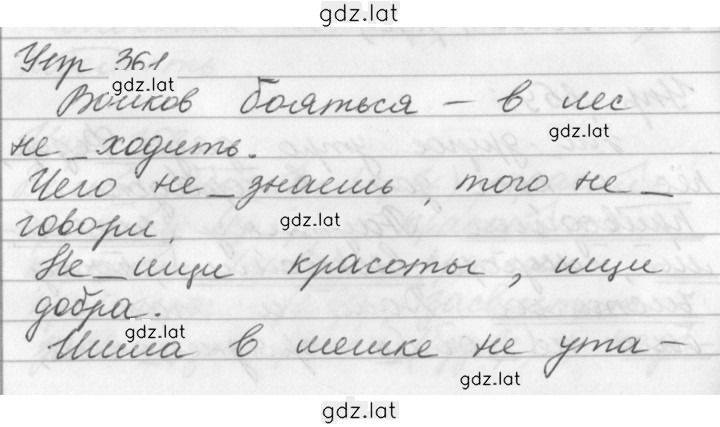 gdz.lat
Упр 361
gdz.lat
Волков бояться – в лес
gdz.lat
не_ходить.
Чего не_знаешь, того не_
gdz.lat
говори.
Не_ищи красоты, ищи
добра.
gdz.lat
Шила в мешке не ута-
gdz.lat
gdz.lat